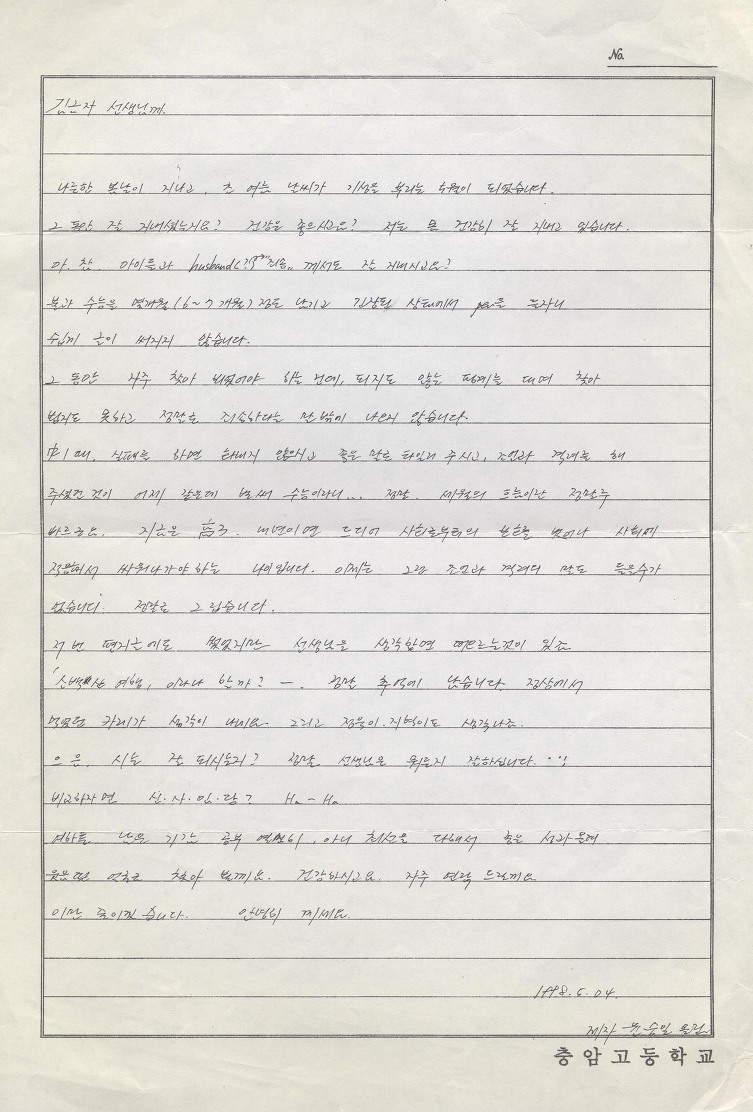 No.
김근자 선생님께.
나른한 봄날이 지나고, 초 여름 날씨가 기승을 부리는 6월이 되었습니다.
그 동안 잘 지내셨는지요? 건강은 좋으시고요? 저는 몸 건강히 잘 지내고 있습니다.
아, 참, 아이들과 husband(?) 께서도 잘 지내시고요?
불과 수능을 몇개월(6~7개월)정도 남기고 긴장된 상태에서 pen을 드자니
쉽게 글이 써지지 않습니다.
그 동안 자주 찾아 뵈었어야 하는 건데, 되지도 않는 핑계를 대며 찾아
뵙지도 못하고 정말로 죄송하다는 말 밖에 나오지 않습니다.
中1때, 실패를 하면 화내지 않으시고 좋은 말로 타일러 주시고, 조언과 격려를 해
주셨던 것이 어제 같은데 벌써 수능이라니... 정말, 세월의 흐름이란 정말루
빠르군요. 지금은 高3. 내년이면 드디어 사회로부터의 보호를 벗어나 사회에
적응해서 싸워나가야 하는 나이입니다. 이제는 그런 조언과 격려의 말도 들을수가
없습니다. 정말로 그립습니다.
저번 편지글에도 썼었지만 선생님을 생각하면 떠오르는것이 있죠
'소백산 여행, 이라나 할까? 정말 추억에 남습니다. 정상에서
먹었던 카레가 생각이 나네요 그리고 정욱이.지혁이도 생각나죠.
으음, 시는 잘 되시는지? 정말, 선생님은 뭐든지 잘하십니다.
비교하자면 신.사.임.당? Ha-Ha
여하튼 남은 기간 공부 열심히, 아니 최선을 다해서 좋은 성과
찾아 뵐께요. 건강하시고요. 자주 연락 드릴께요
이만 줄이겠습니다. 안녕히 계세요.
1998. 6. 04.
제자 승일 올림
충암고등학교